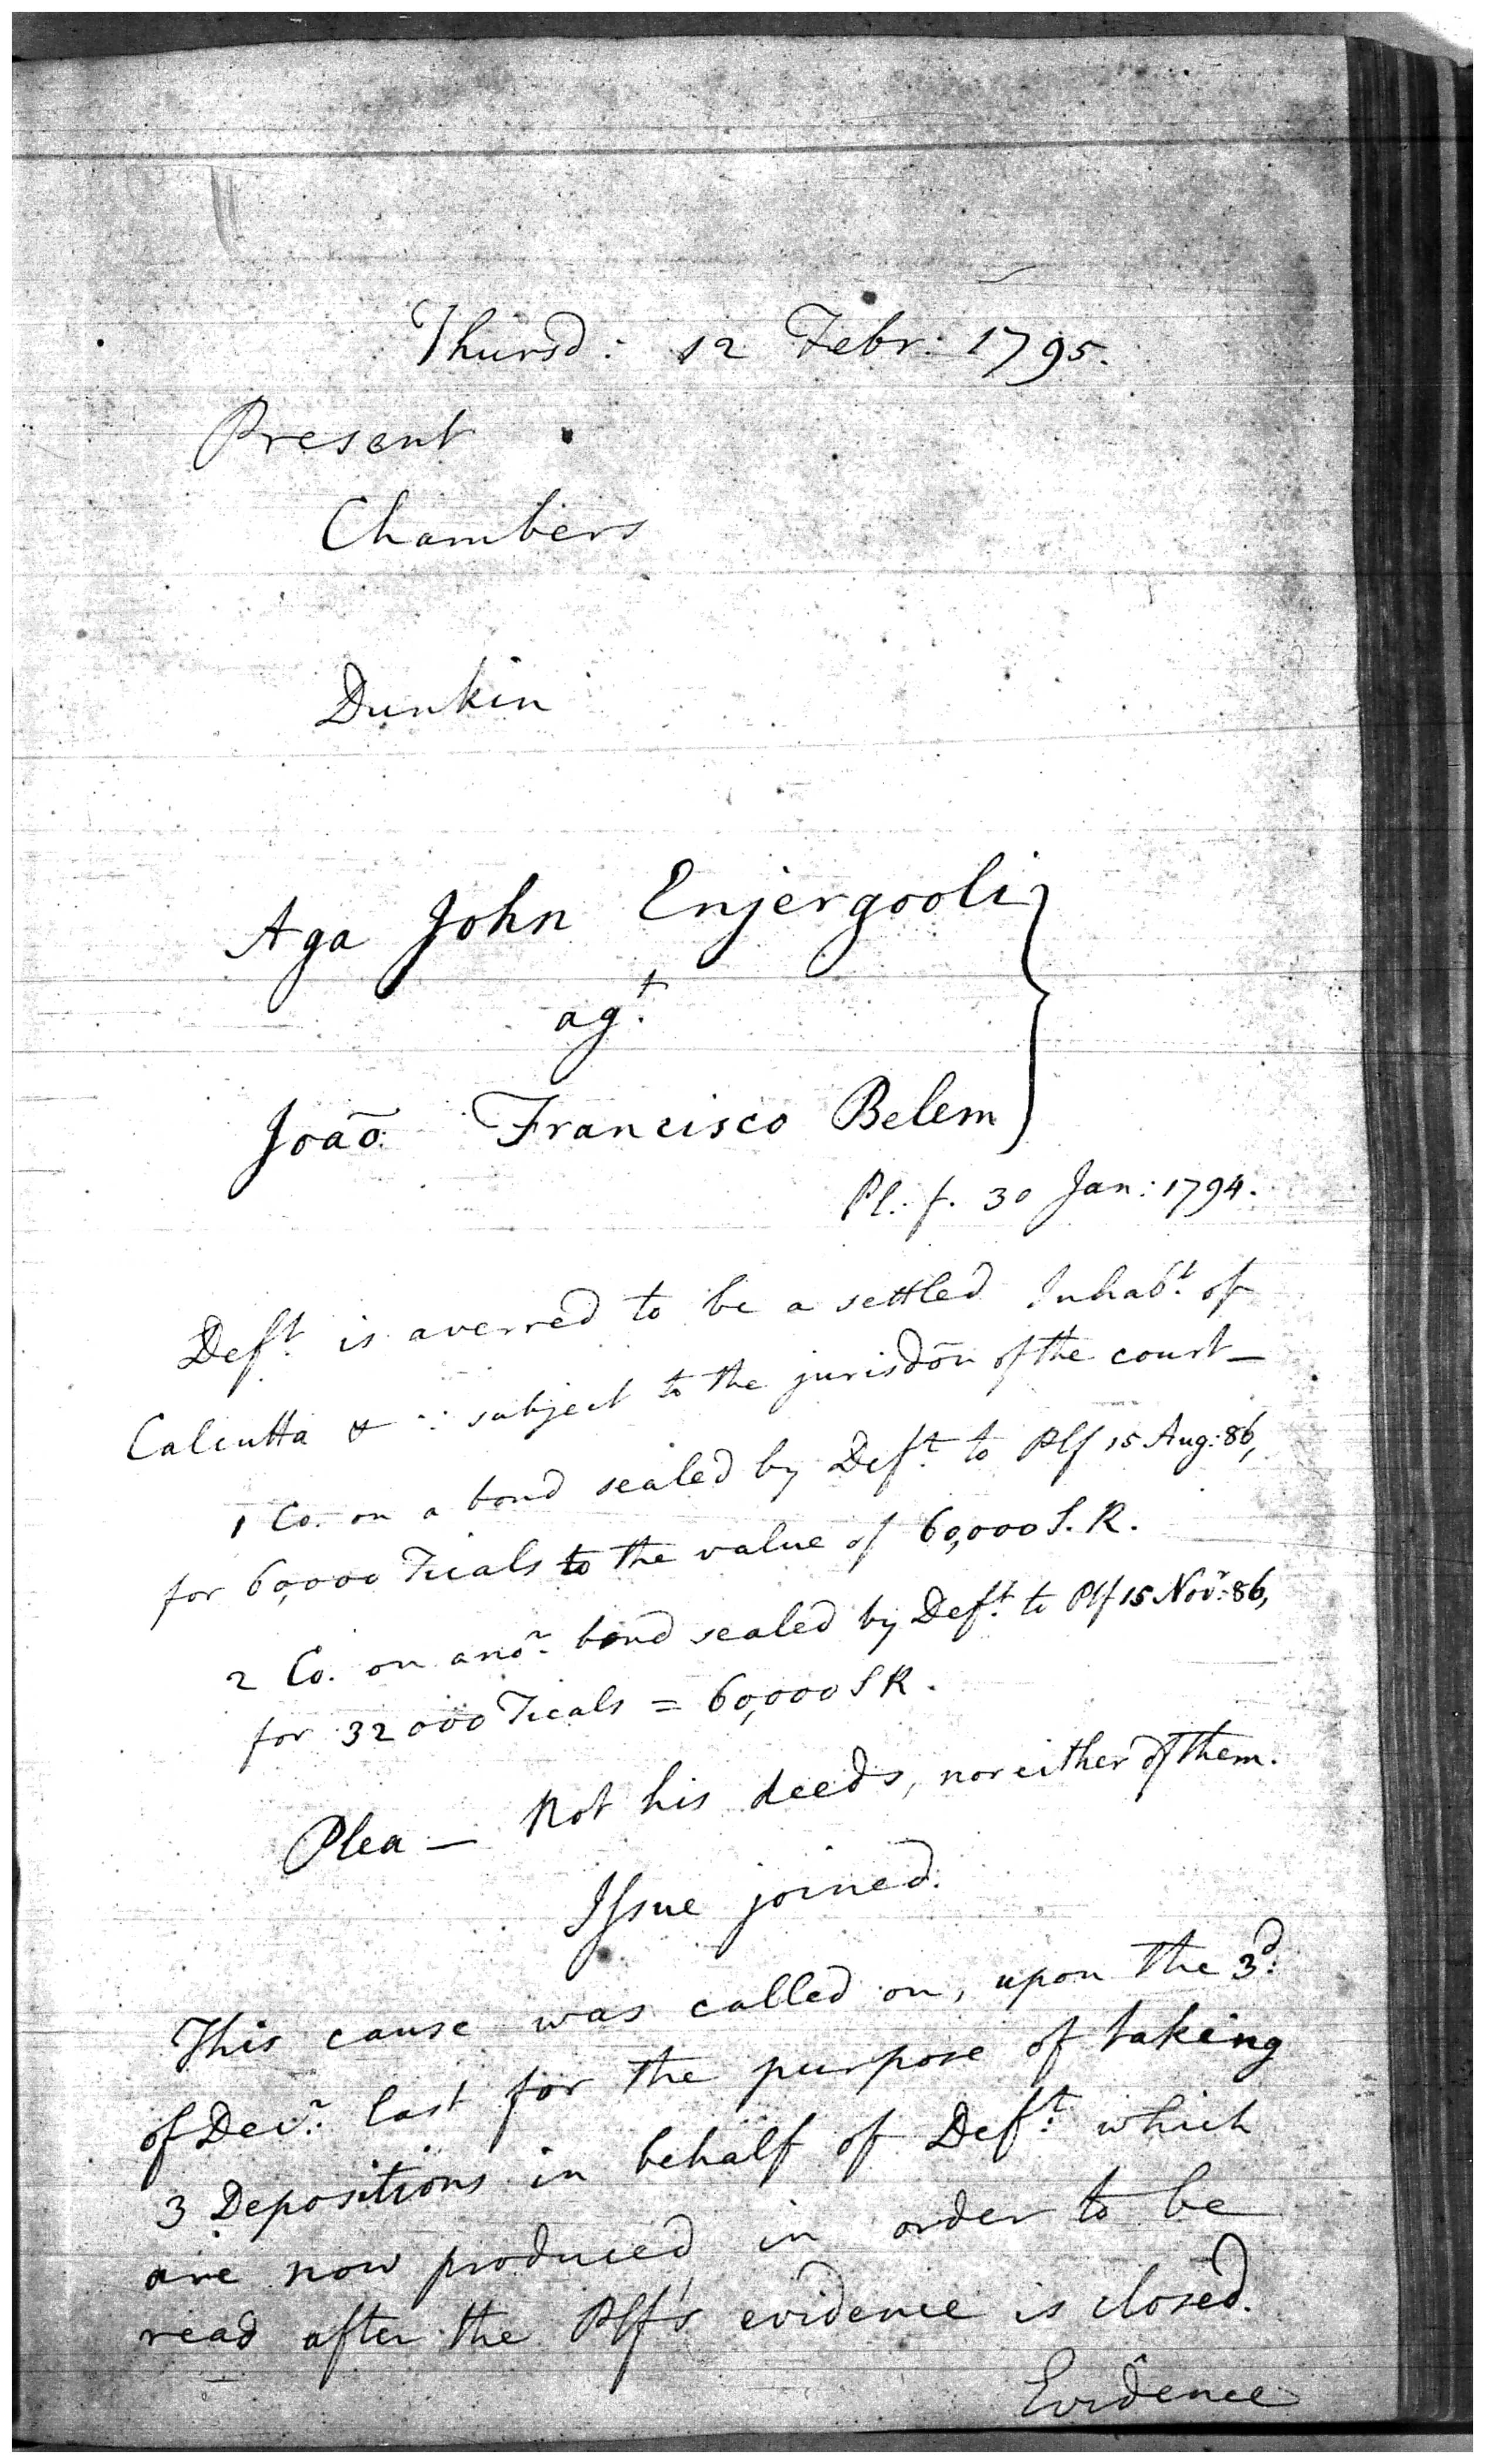 Thursd: 12 Febr: 1795.
Present
Chambers
Dunkin
Aga John Enjergooli
agt.
Joaõ Francisco Belem
Pl: f. 30 Jan: 1794.
Deft. is averred to be a settled Inhabt. of
Calcutta & ∵ subject to the jurisdõn of the court—
1 Co. on a bond sealed by Deft. to Plf 15 Aug: 86,
for 60,000 Ticals to the value of 60,000 S. R.
2 Co. on anor. bond sealed by Deft. to Plf 15 Novr: 86,
for 32000 Ticals = 60,000 S R.
Plea — Not his deeds, nor either of them.
Issue joined.
This cause was called on, upon the 3d.
of Decr. last for the purpose of taking
3 Depositions in behalf of Deft. which
are now produced in order to be
read after the Plf's evidence is closed.
Evidence